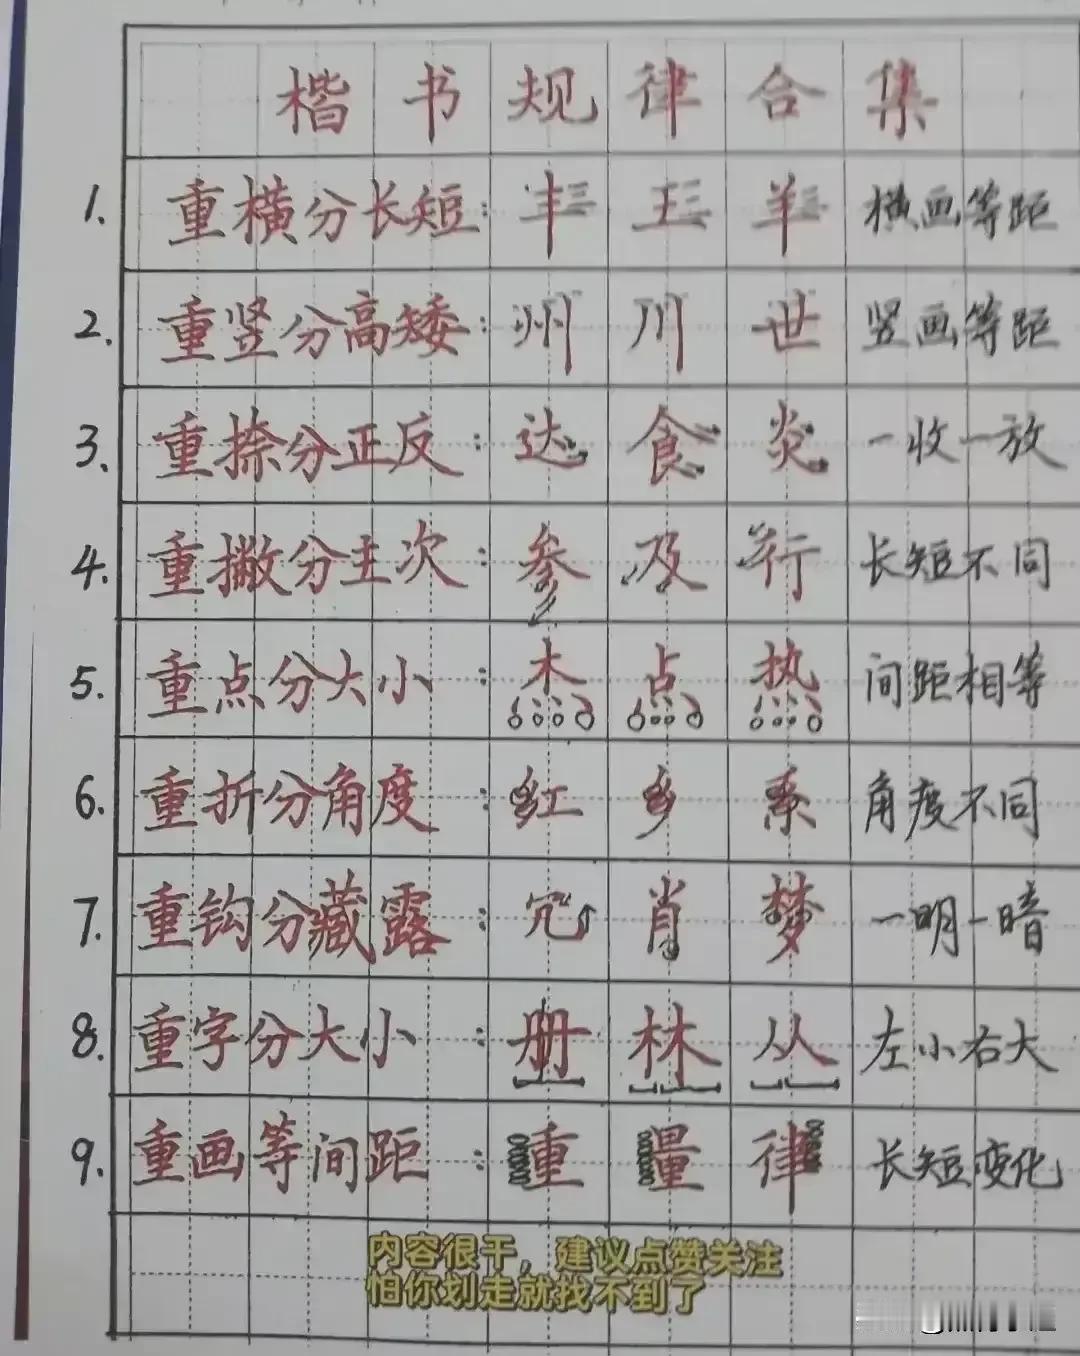 楷书规律合集
1. 重横分长短：丰 王 羊 横画等距
2. 重竖分高矮：州 川 世 竖画等距
3. 重捺分正反：达 食 炎 一收一放
4. 重撇分主次：参 及 行 长短不同
5. 重点分大小：杰 点 热 间距相等
6. 重折分角度：红 乡 系 角度不同
7. 重钩分藏露：冗 肖 梦 一明一暗
8. 重字分大小：册 林 从 左小右大
9. 重画等间距：重 量 律 长短变化
内容很干，建议点赞关注
怕你划走就找不到了